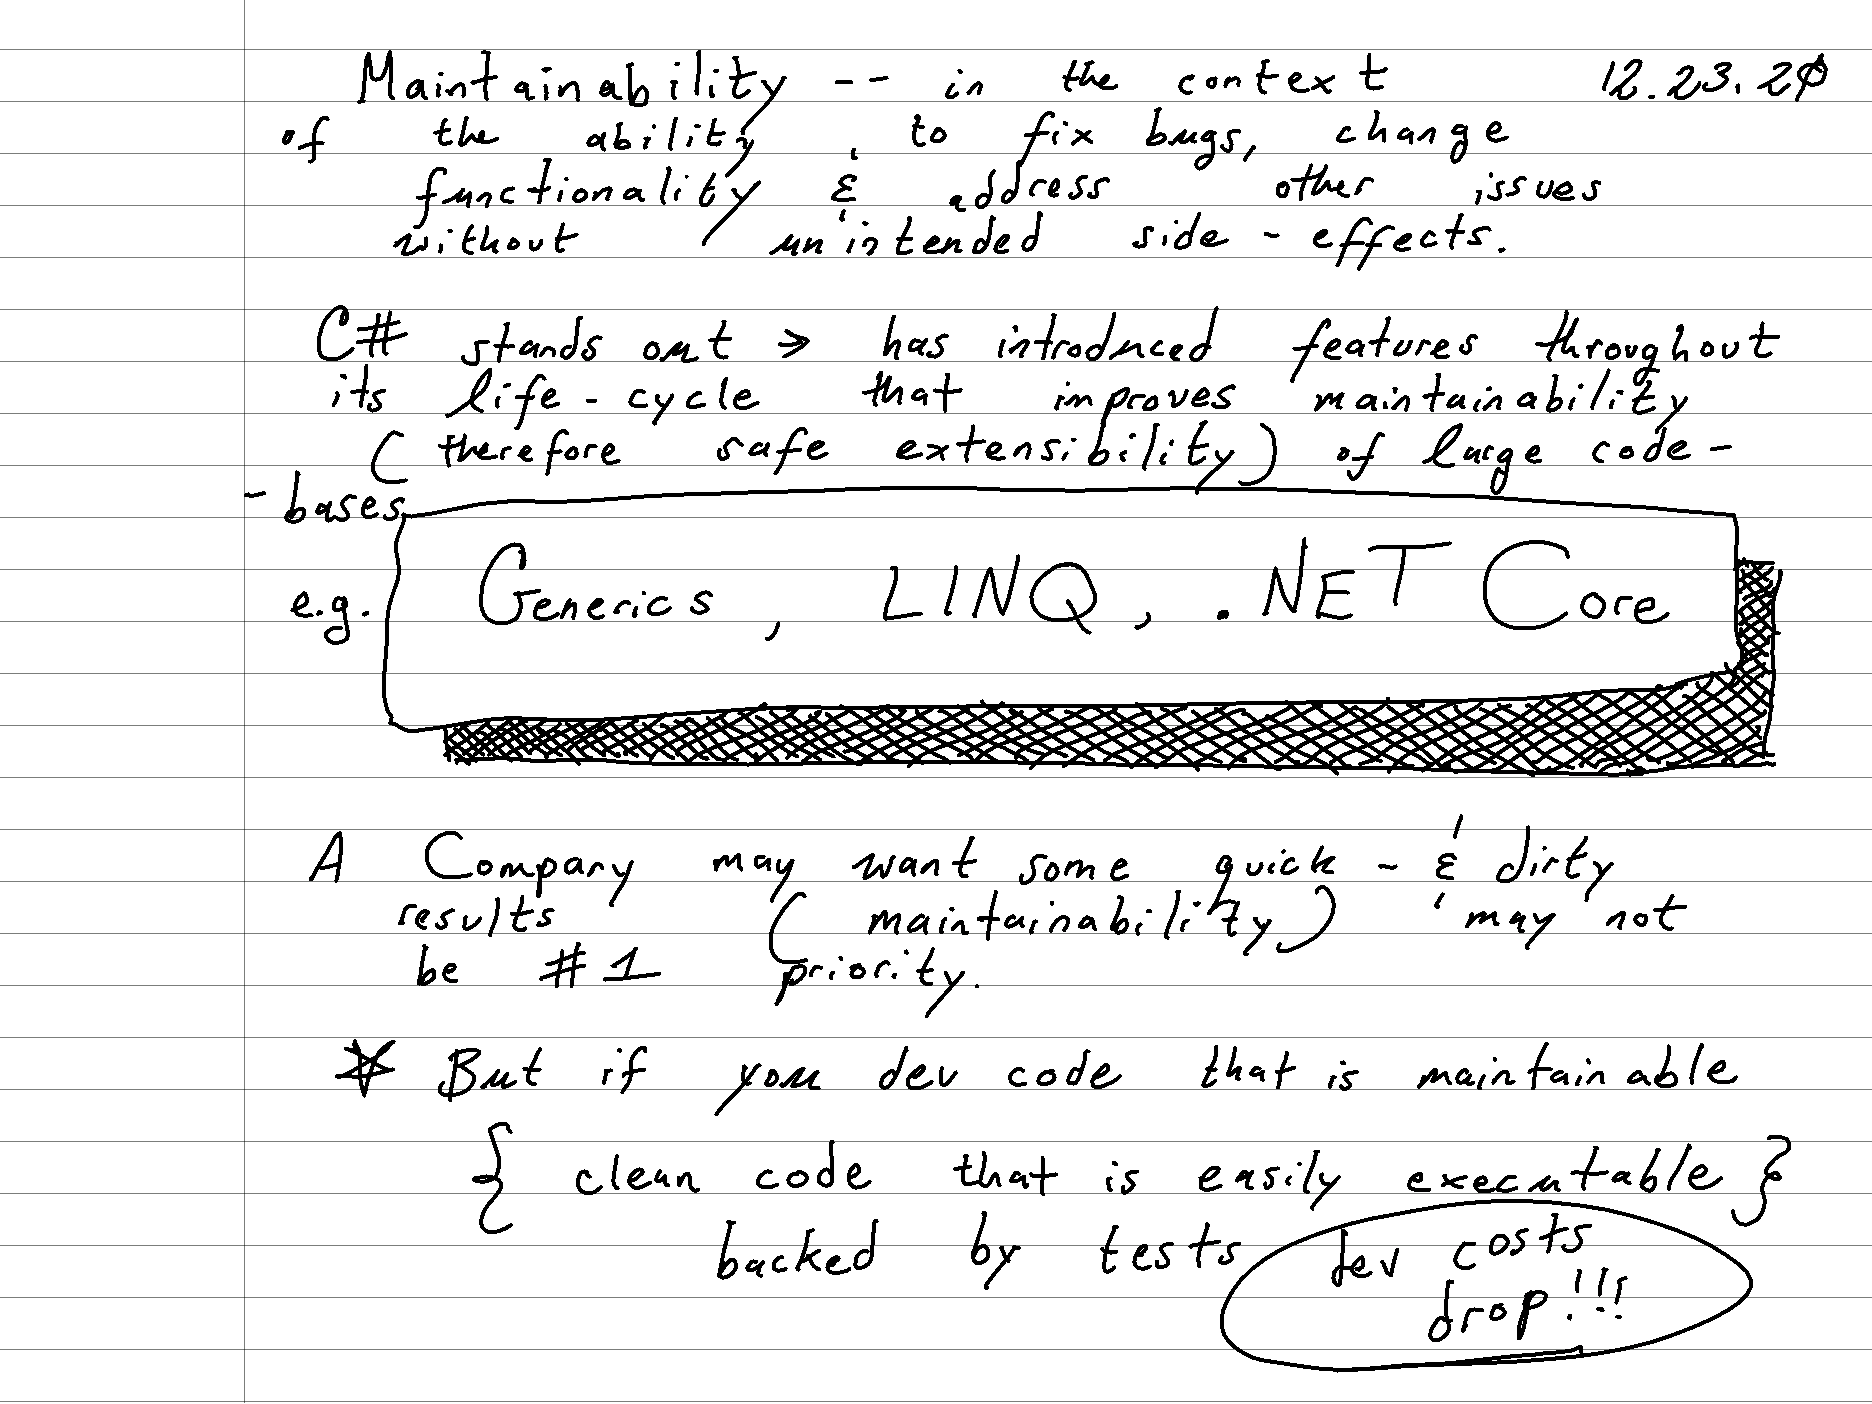 Maintainability -- in the context 12.23.20
of the ability to fix bugs, change
functionality & address other issues
without unintended side-effects.
C# stands out > has introduced features throughout
its life-cycle that improves maintainability
(therefore safe extensibility) of large code-
-bases
e.g. Generics, LINQ, .NET Core
A Company may want some quick-& dirty
results (maintainability) may not
be #1 priority.
☆ But if you dev code that is maintainable
{ clean code that is easily executable }
backed by tests dev costs
drop!!!